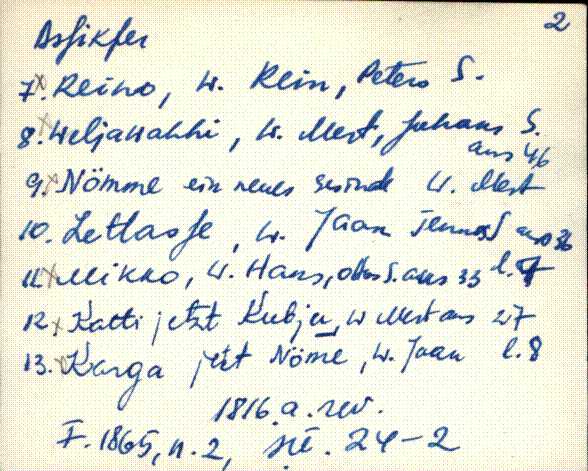 2
Assikfer
7. Reino, W. Rein, Peters S.
8. Weljawahhi, W. Mert, Juhans S.
aus 46
9. Nömme ein neues Gesinde W. Mert
10. Letlasse, W. Jaan Tennos S aus 36
11. Mikko, W. Hans, Ottos S. aus 33 l. 7
12. Katti jetzt Kubja, W Mert aus 27
13. Karga jetzt Nöme, W. Jaan l. 8
1816. a. rev.
F. 1865, n. 2, 24-2